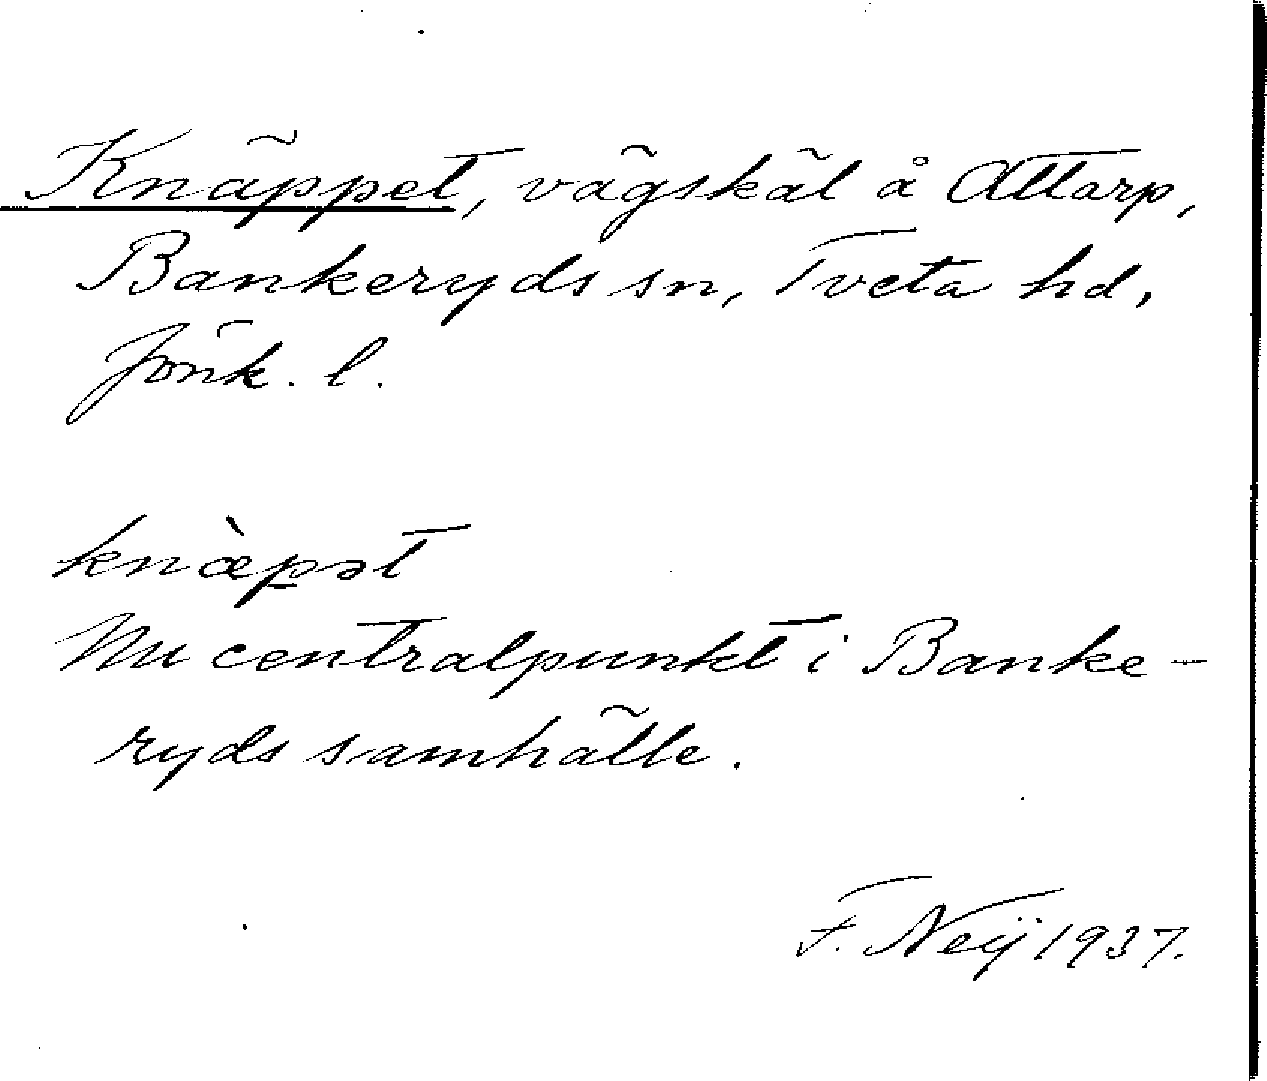 Knäppet, vägskäl å Attarp,
Bankeryds sn, Tveta hd,
Jönk. l.
knæ̀pət
Nu centralpunkt i Banke-
ryds samhälle.
F. Neij 1937.